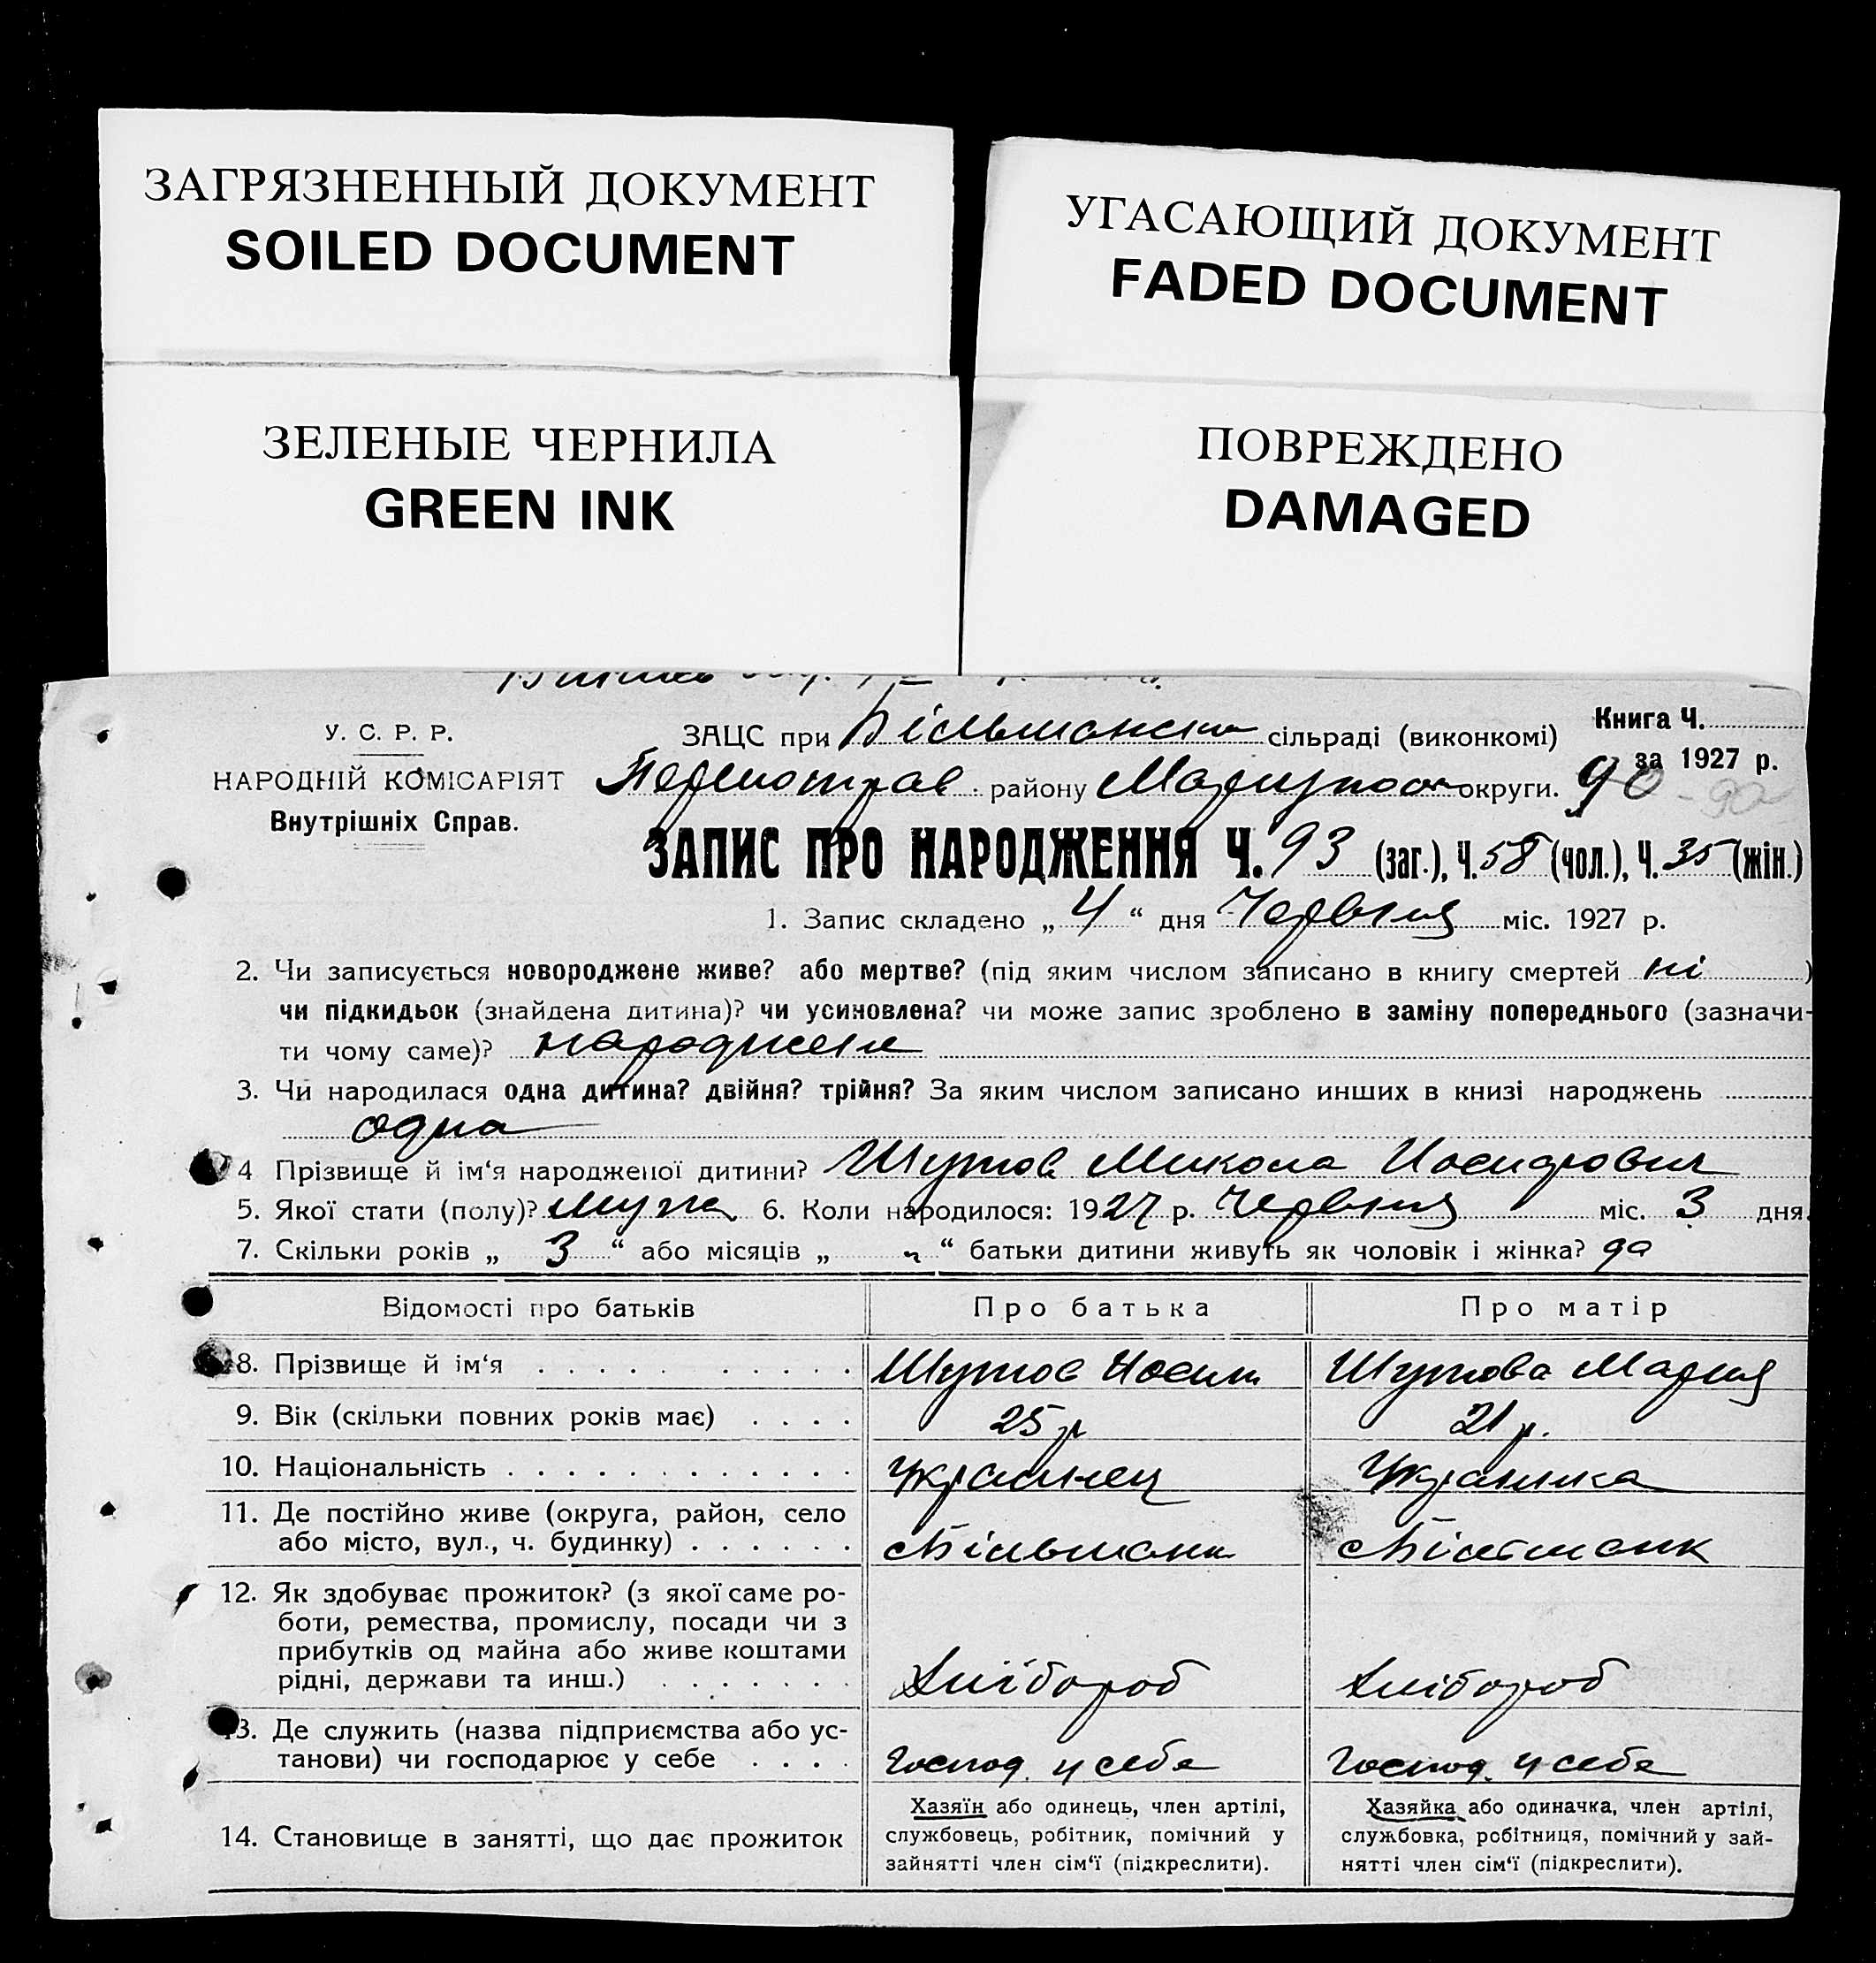 ЗАГРЯЗНЕННЫЙ ДОКУМЕНТ
SOILED DOCUMENT
УГАСАЮЩИЙ ДОКУМЕНТ
FADED DOCUMENT
ЗЕЛЕНЫЕ ЧЕРНИЛА
GREEN INK
ПОВРЕЖДЕНО
DAMAGED
У. С. Р. Р.
НАРОДНІЙ КОМІСАРІЯТ
Внутрішніх Справ.
ЗАЦС при сільраді (виконкомі)
Книга Ч.
за 1927 р.
району округи. 90 - 90
ЗАПИС ПРО НАРОДЖЕННЯ Ч. 93 (заг.), Ч. 58 (чол.), Ч. 35 (жін.)
1. Запис складено „ 4 “ дня Червня міс. 1927 р.
2. Чи записується новороджене живе? або мертве? (під яким числом записано в книгу смертей ні )
чи підкидьок (знайдена дитина)? чи усиновлена? чи може запис зроблено в заміну попереднього (зазначи-
ти чому саме)?
3. Чи народилася одна дитина? двійня? трійня? За яким числом записано инших в книзі народжень
одна
4 Прізвище й ім‘я народженої дитини? Шутов Микола Иосифович
5. Якої стати (полу)? муж. 6. Коли народилося: 1927 р. Червня міс. 3 дня.
7. Скільки років „ 3 “ або місяців „ “ батьки дитини живуть як чоловік і жінка? да
Відомості про батьків Про батька Про матір
8. Прізвище й ім‘я . . . . . . . . . Шутов Шутова Мария
9. Вік (скільки повних років має) . . . . 25 р 21 р.
10. Національність . . . . . . . . . . . . Украинец Украинка
11. Де постійно живе (округа, район, село
або місто, вул., ч. будинку) . . . . . .
12. Як здобуває прожиток? (з якої саме ро-
боти, ремества, промислу, посади чи з
прибутків од майна або живе коштами
рідні, держави та инш.) . . . . . . . Хлібороб Хлібороб
13. Де служить (назва підприємства або ус-
танови) чи господарює у себе . . . . Господ. у себе Господ. у себе
14. Становище в занятті, що дає прожиток
Хазяїн або одинець, член артілі,
службовець, робітник, помічний у
зайнятті член сім‘ї (підкреслити).
Хазяйка або одиначка, член артілі,
службовка, робітниця, помічний у зай-
нятті член сім‘ї (підкреслити).